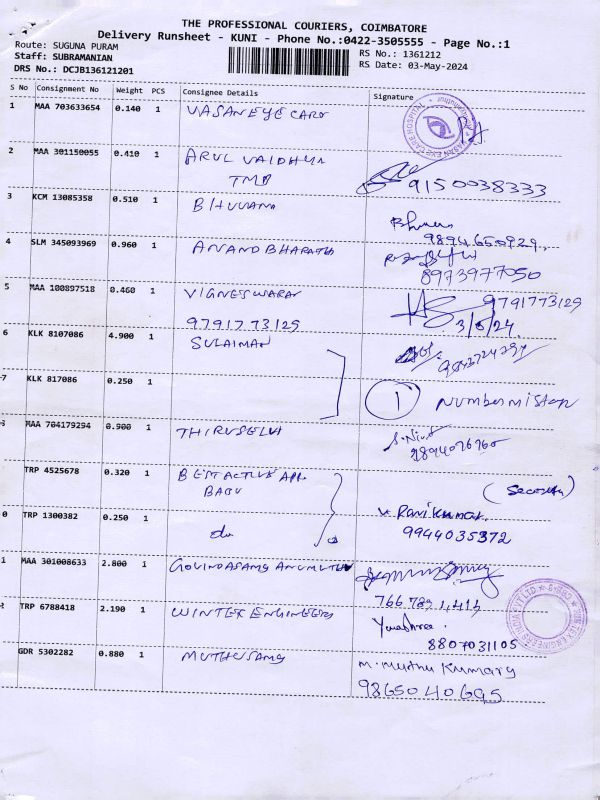 THE PROFESSIONAL COURIERS, COIMBATORE
Delivery Runsheet - KUNI - Phone No.:0422-3505555 - Page No.:1
Route: SUGUNA PURAM
RS No.: 1361212
Staff: SUBRAMANIAN
RS Date: 03-May-2024
DRS No.: DCJB136121201
S No Consignment No Weight PCS Consignee Details Signature
1 MAA 703633654 0.140 1 VASAN EYE CARE
VASAN EYE CARE HOSPITAL
2 MAA 301150055 0.410 1 ARUL VAIDHYA
TMP
9150038333
3 KCM 13085358 0.510 1 BHUVANA
4 SLM 345093969 0.960 1 ANAND BHARATH
8973977050
5 MAA 100897518 0.460 1 VIGNESWARAN 9791773129
9791773129 3/5/24
6 KLK 8107086 4.900 1 SULAIMAN
7 KLK 817086 0.250 1 1 Number mistake
MAA 704179294 0.900 1 THIRUSELVI
TRP 4525678 0.320 1 BEST ACTIVE APP.
BABU
0 TRP 1300382 0.250 1 do V. Ravikumar
9944035372
1 MAA 301008633 2.800 1 GOVINDASAMY
TRP 6788418 2.190 1 WINTEX ENGINEERS
8807031105
GDR 5302282 0.880 1 MUTHUSAMY M. Muthu Kumary
9865040695